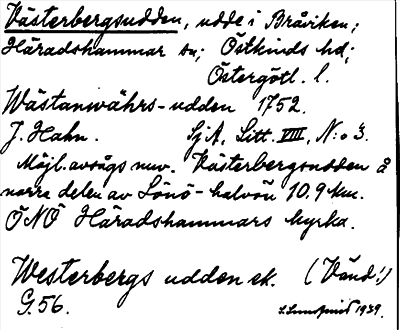 Västerbergsudden, udde i Bråviken;
Häradshammar sn; Östkinds hd;
Östergötl. l.
Wästanwährs-udden 1752.
J. Hahn. SjA, Litt. VIII, N:o 3.
Möjl. avsågs nuv. Västerbergsudden å
norra delen av Lönö-halvön 10.9 km.
ÖNÖ Häradshammars kyrka.
Westerbergs udden ek. (Vänd!)
G. 56. 1939.